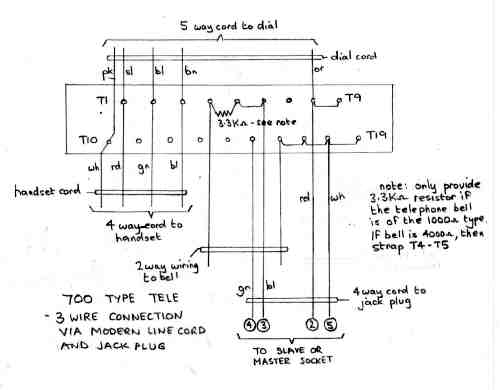 5 way cord to dial
dial cord
pk sl bl bn or
T1 T9
3.3KΩ - see note
T10 T19
wh rd gn bl
handset cord
4 way cord to
handset
rd wh
note: only provide
3.3KΩ resistor if
the telephone bell
is of the 1000Ω type.
If bell is 4000Ω, then
strap T4-T5
2 way wiring
to bell
gn bl
4 way cord to
jack plug
700 TYPE TELE
- 3 WIRE CONNECTION
VIA MODERN LINE CORD
AND JACK PLUG
4 3 2 5
TO SLAVE OR
MASTER SOCKET